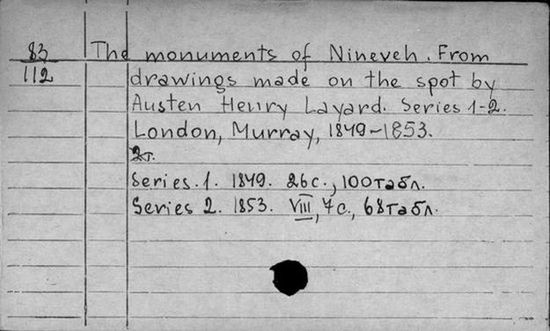 83 The monuments of Nineveh. From
112 drawings made on the spot by
Austen Henry Layard. Series 1-2.
London, Murray, 1849-1853.
2т.
Series. 1. 1849. 26с., 100табл.
Series 2. 1853. VIII, 7с., 68табл.